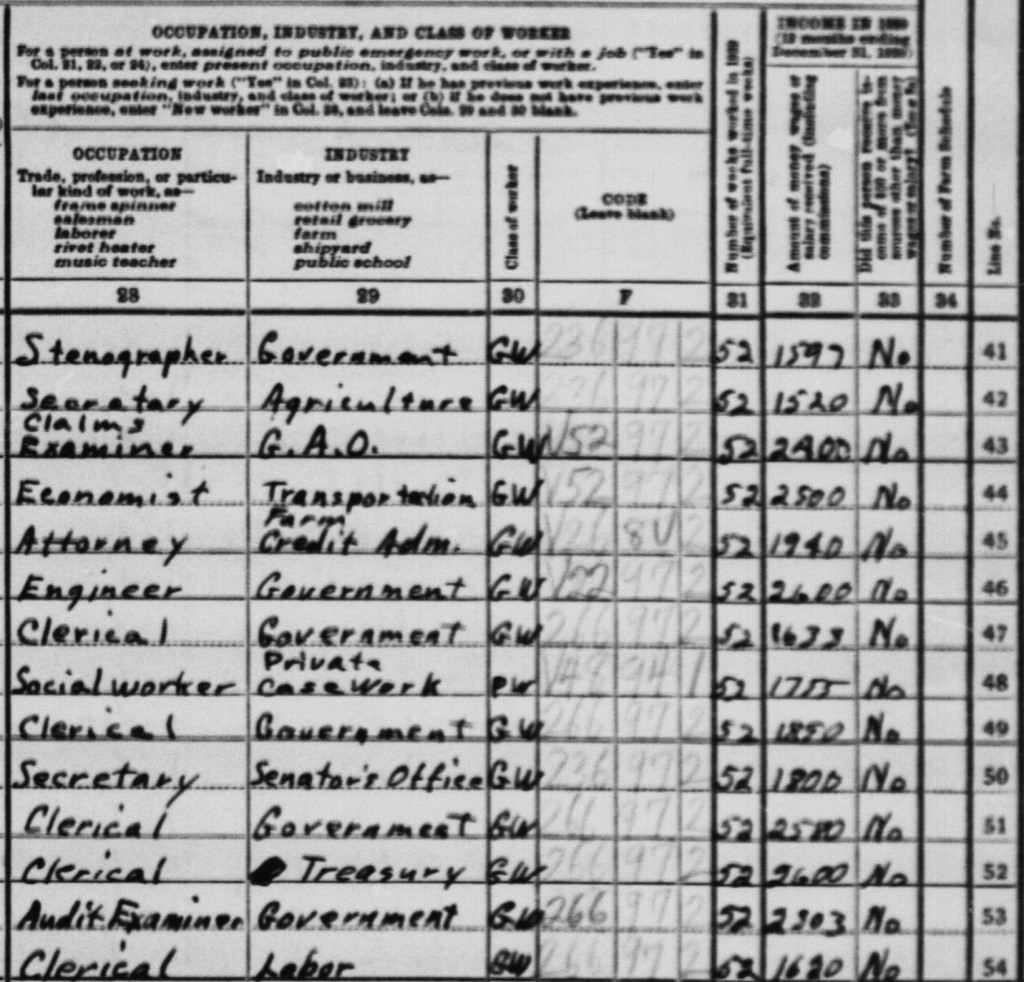 OCCUPATION, INDUSTRY, AND CLASS OF WORKER
For a person at work, assigned to public emergency work, or with a job ("Yes" in
Col. 21, 22, or 24), enter present occupation, industry, and class of worker.
For a person seeking work ("Yes" in Col. 23): (a) If he has previous work experience, enter
last occupation, industry, and class of worker; or (b) If he does not have previous work
experience, enter "New worker" in Col. 28, and leave Cols. 29 and 30 blank.
OCCUPATION
Trade, profession, or particu-
lar kind of work, as—
frame spinner
salesman
laborer
rivet heater
music teacher
INDUSTRY
Industry or business, as—
cotton mill
retail grocery
farm
shipyard
public school
Class of worker
CODE
(Leave blank)
Number of weeks worked in 1939
(Equivalent full-time weeks)
INCOME IN 1939
(12 months ending
December 31, 1939)
Amount of money wages or
salary received (including
commissions)
Did this person receive in-
come of $50 or more from
sources other than money
wages or salary? (Y or N)
Number of Farm Schedule
Line No.
28 29 30 F 31 32 33 34
Stenographer Government GW 236 97 2 52 1597 No 41
Secretary Agriculture GW 236 97 2 52 1520 No 42
Claims
Examiner G.A.O. GW V52 97 2 52 2400 No 43
Economist Transportation GW V52 97 2 52 2500 No 44
Farm
Attorney Credit Adm. GW V26 8V 52 1940 No 45
Engineer Government GW V22 97 2 52 2600 No 46
Clerical Government GW 266 97 2 52 1633 No 47
Private
Social worker case work PW V48 94 1 52 1755 No 48
Clerical Government GW 266 97 2 52 No 49
Secretary Senator's Office GW 236 97 2 52 1800 No 50
Clerical Government GW 266 97 2 52 No 51
Clerical Treasury GW 266 97 2 52 2600 No 52
Audit Examiner Government GW 266 97 2 52 2303 No 53
Clerical Labor GW 266 97 2 52 1620 No 54